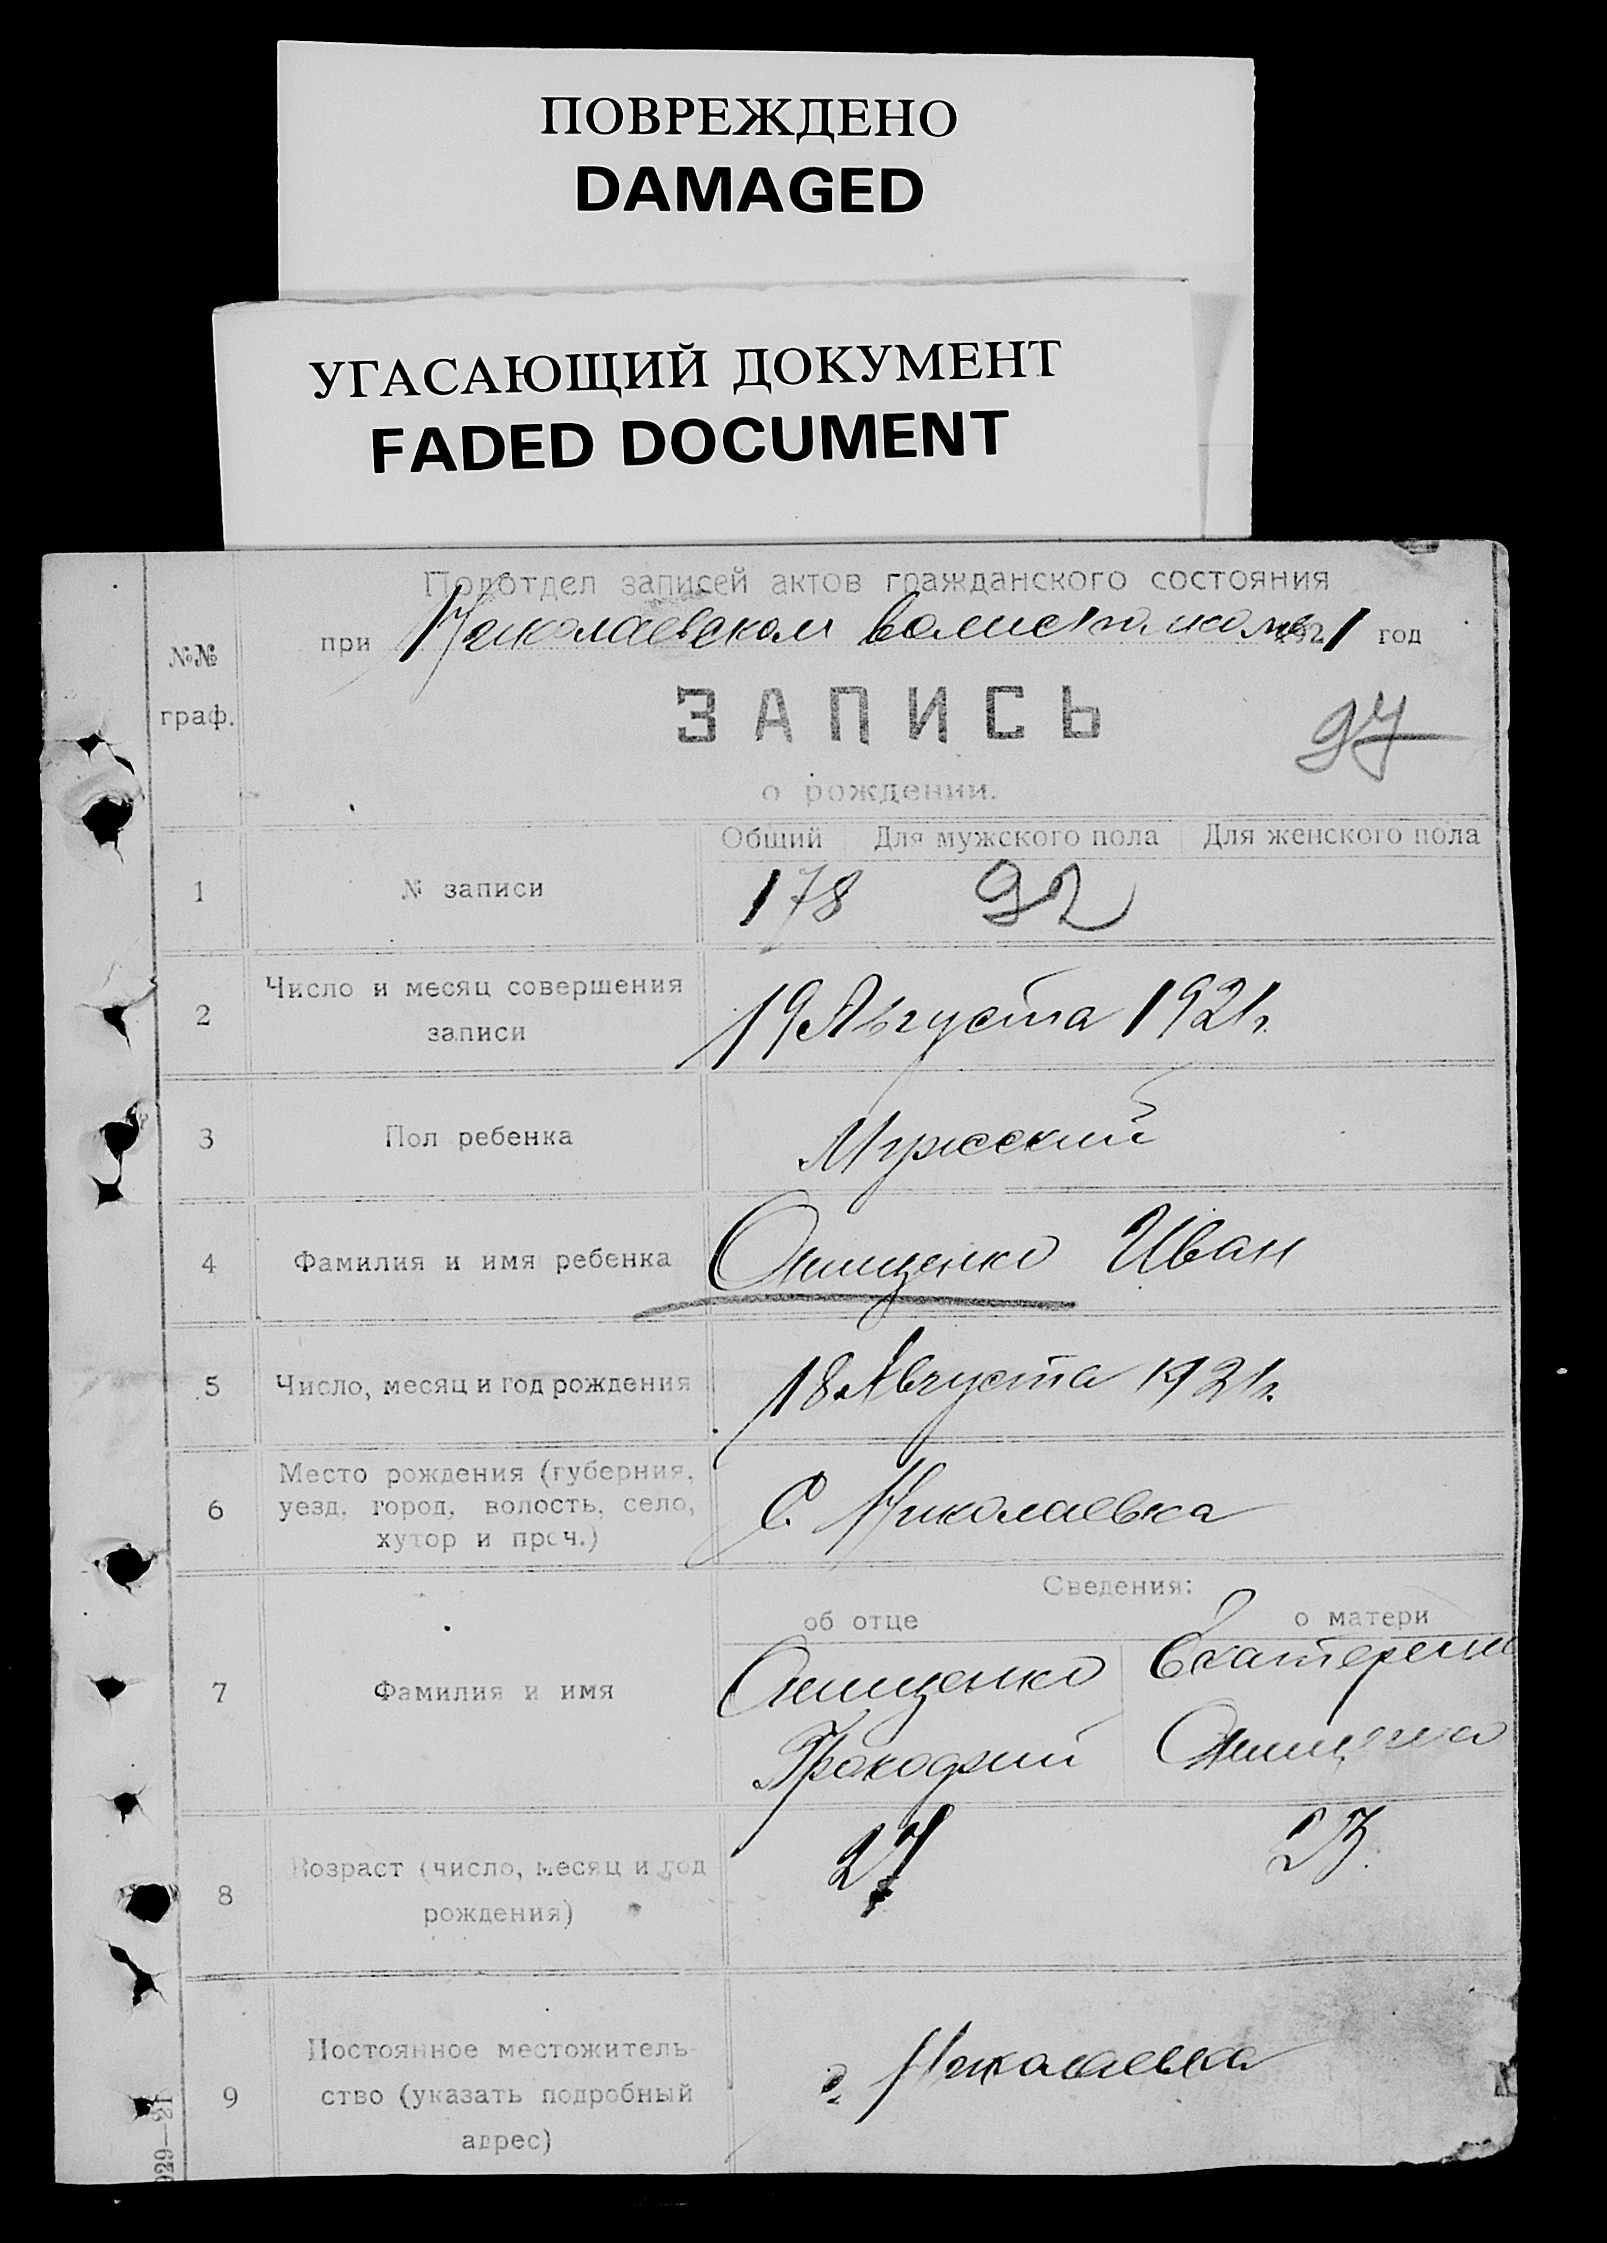 ПОВРЕЖДЕНО
DAMAGED
УГАСАЮЩИЙ ДОКУМЕНТ
FADED DOCUMENT
Подотдел записей актов гражданского состояния
при Николаевском 1921 год
№№
граф.
ЗАПИСЬ
97
о рождении.
Общий Для мужского пола Для женского пола
1 № записи 178 92
2 Число и месяц совершения
записи
19 Августа 1921 г.
3 Пол ребенка Мужский
4 Фамилия и имя ребенка Онищенко Иван
5 Число, месяц и год рождения 18 Августа 1921 г.
6 Место рождения (губерния,
уезд, город, волость, село,
хутор и проч.)
С. Николаевка
Сведения:
об отце о матери
7 Фамилия и имя
Онищенко
Прокофий
Екатерина
Онищенко
8 Возраст (число, месяц и год
рождения)
27 23.
9 Постоянное местожитель-
ство (указать подробный
адрес)
с. Николаевка
029—21